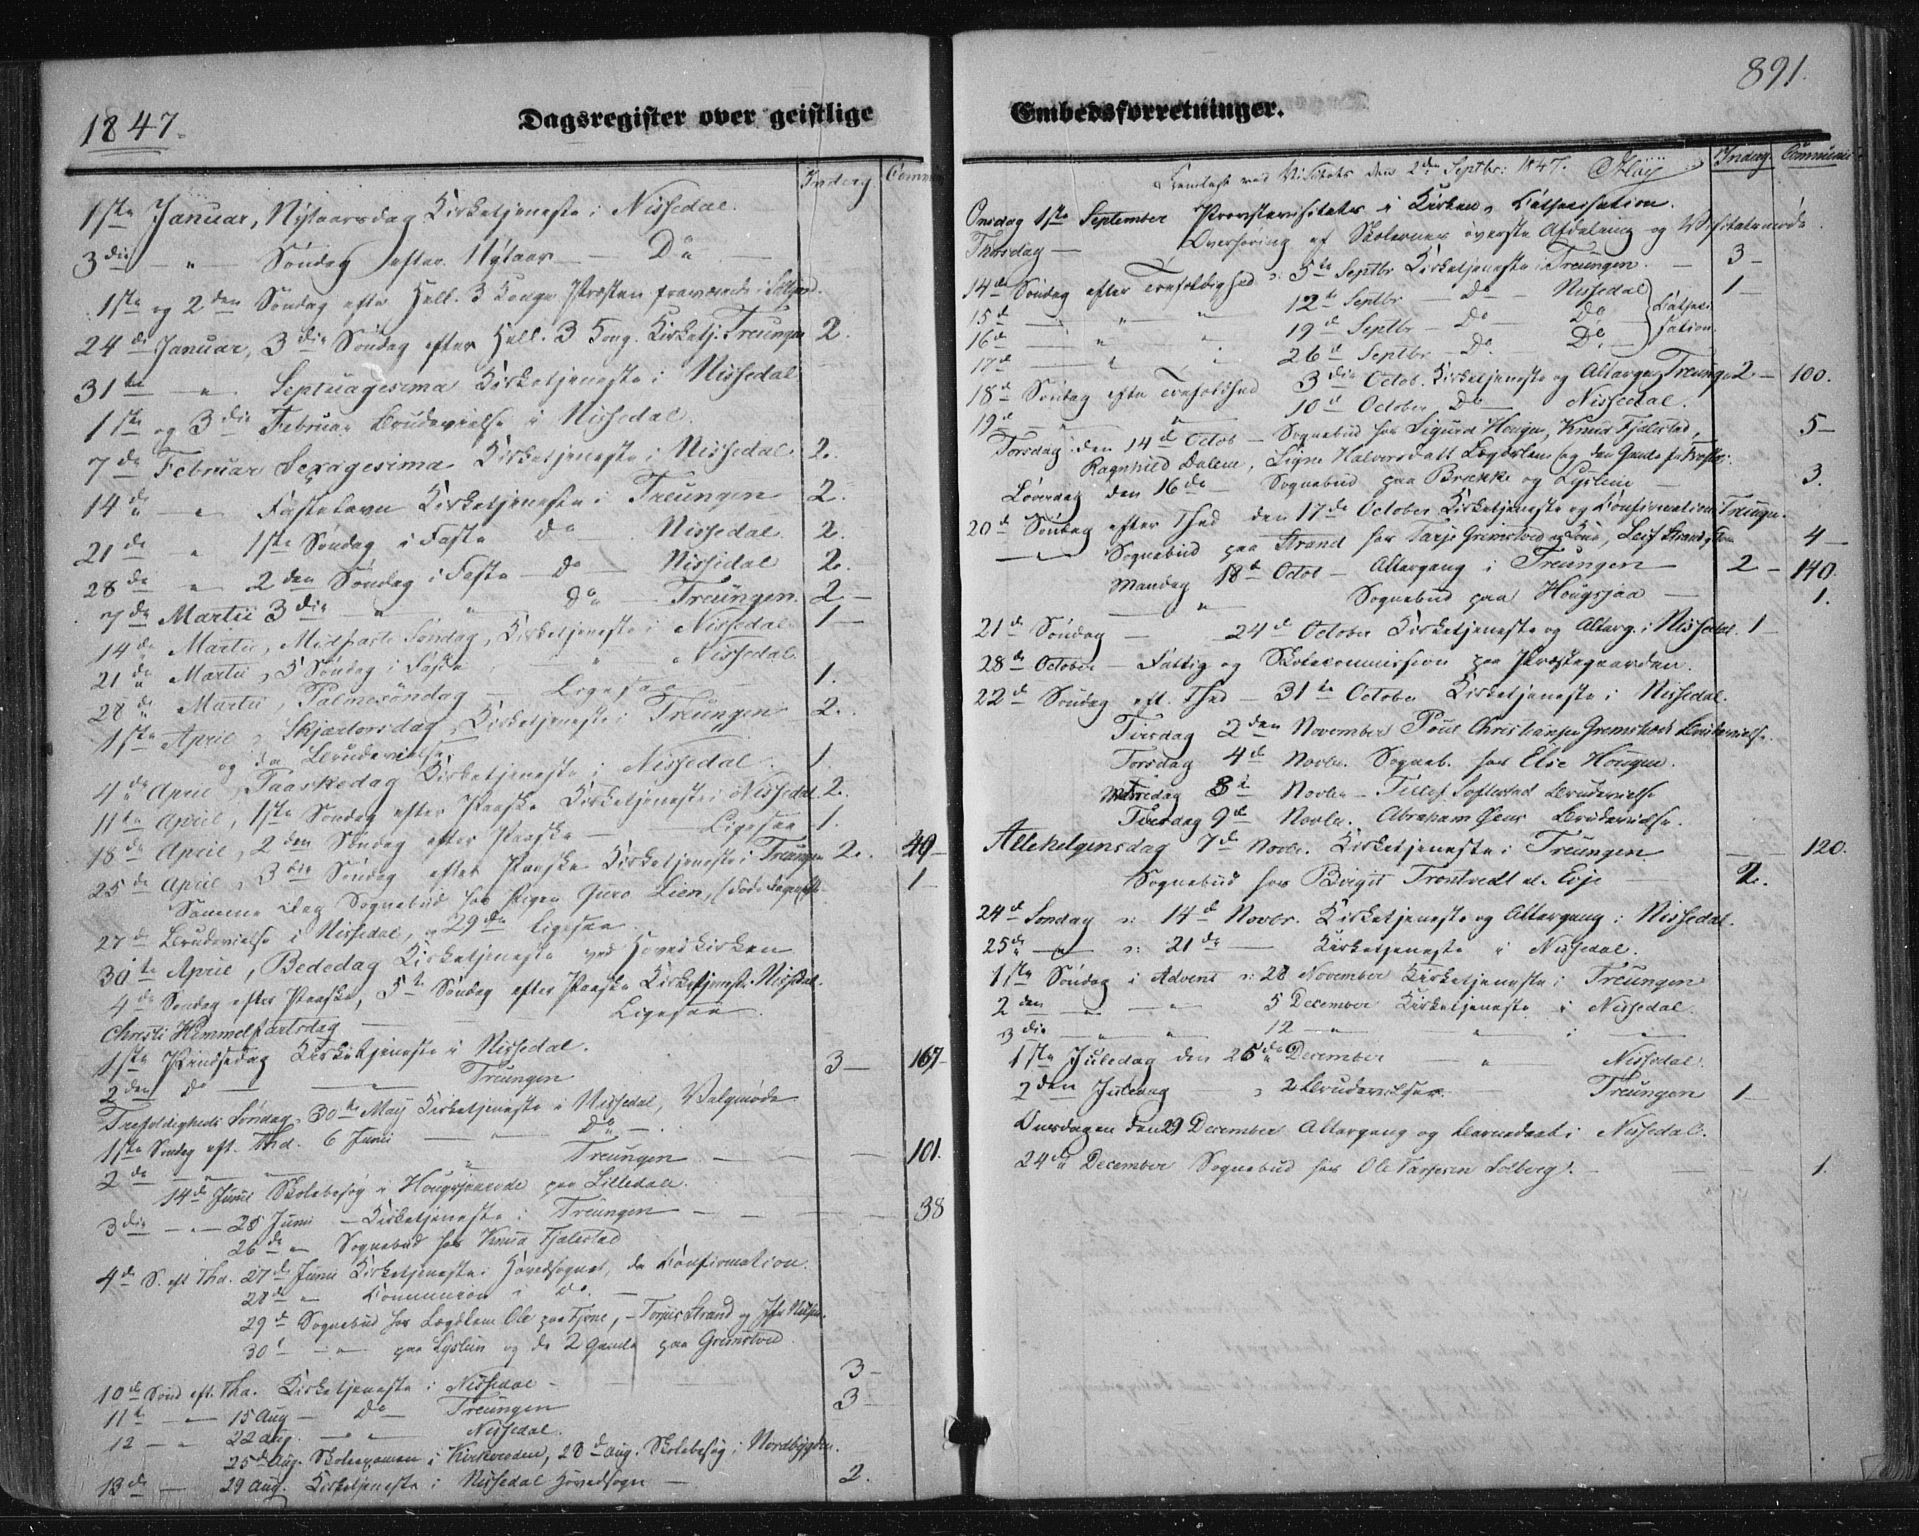 1847.
Dagsregister over geistlige
Inderg Commu
1ste Januar, Nytaarsdag Kirketjeneste i Nissedal.
3die — " — Söndag efter Nytaar — Do —
1ste og 2den Söndag efter Hell. 3 Konge Præsten fraværende i
24de Januar, 3die Söndag efter Hell. 3 Kong. Kirketj. Treungen 2.
31te — " — Septuagesima Kirketjeneste i Nissedal
1ste og 3die Februar Brudevielse i Nissedal.
7de Februar Sexagesima Kirketjeneste i Nissedal 2.
14de — " — Fastelavn Kirketjeneste i Treungen 2.
21de — " — 1ste Söndag i Faste do Nissedal 2.
28de — " — 2den Söndag i Faste — do — Nissedal 2.
7de Martii 3die — " — " — Do — Treungen. 2 —
14de Martii, Midfaste Söndag, Kirketjeneste i Nissedal 1 —
21de Martii, 5 Söndag i Faste — " — Nissedal.
28de Martii, Palmesöndag — Ligesaa — 1.
1ste April, Skjærtorsdag, Kirketjeneste i Treungen 2.
og da Brudevielse
4de April, Paaskedag Kirketjeneste i Nissedal. 1.
11te April, 1ste Söndag efter Paaske Kirketjeneste i Nissedal 2.
18de April, 2den Söndag efter Paaske — Ligesaa 1.
25de April, 3die Söndag efter Paaske Kirketjeneste i Treungen 2. 49 —
Samme Dag Sognebud hos Pigen Guro Lien, 1 —
27de Brudevielse i Nissedal, og 29de Ligesaa
30te April, Bededag Kirketjeneste ved Hovedkirken
4de Söndag efter Paaske, 5te Söndag efter Paaske Kirketjeneste Nissedal.
Christi Himmelfartsdag — Ligesaa.
1ste Pindsedag Kirketjeneste i Nissedal.
2den do — " — Treungen 3 — 167 —
Trefoldigheds Söndag, 30te May Kirketjeneste i Nissedal, Valgmöde
1ste Söndag eft. Thd. 6 Junii — " — Do —.
2de — " — " — Treungen — 101.
14de Junii Skolebesög i Hougsjaarode paa Lilledale.
3die — " — 25 Juni — Kirketjeneste i Treungen — 38
26de — " — Sognebud hos Knud Fjalestad
4de S. eft Thd. 27de Junii Kirketjeneste i Hovedsognet, da Confirmation.
28de — " — Communion i do. —
29de Sognebud hos Lægdslem Ole paa Tjone, — Tarjei Strand og
30d — " — paa Lyslein og de 2 Gamle paa Gremstved.
10de Sönd eft. Thd. Kirketjeneste i Nissedal — 3 —
11te — " — 15 Aug — Do — Treungen 3 —
12 — " — 22 Aug. — " — Nissedal.
25de Aug. Skoleexamen i Kirkeroden, 28de Aug. Skolebesög i Nordbygden.
13de — " — 29 Aug. Kirketjeneste i Nissedal Hovedsogn — 2.
891.
Embedsforretninger.
Inderg. Communic
Fremlagt ved Visitats den 2den Septbr: 1847.
Onsdag 1ste September Provstevisitats i Kirken, Catechisation.
Thorsdag — Overhöring af Skolernes överste Afdeling og Visitatsmöde
14de Söndag efter Trefoldighed : 5te Septbr Kirketjeneste i Treungen. — 3 —
15d — " — " — 12te Septbr — Do — Nissedal 1
16d — " — " — 19d Septbr — Do — Do Catechisation.
17d — " — " — 26d Septbr — Do — Do
18d Söndag efter Trefoldighed 3die Octob. Kirketjeneste og Altergang Treungen 2 — 100.
19d — " — 10d October Do — Nissedal.
Torsdag den 14d Octob — Sognebud hos Sigurd Hougen, Knud Fjalestad, 5 —
Ragnhild Dalen, Signe Halvorsdatt Lægdslem og den Gamle
Löverdag den 16de — Sognebud paa Brække og Lyslein — 3.
20d Söndag efter Thed den 17de October Kirketjeneste og Confirmation Treungen.
— " — Sognebud paa Strand hos Tarje Gremstved og Leif Strand 4 —
Mandag 18d Octob — Altergang i Treungen — 2 — 140.
— " — Sognebud paa Hougsjaa — 1.
21d Söndag — 24d October Kirketjeneste og Alterg. i Nissedal. 1 —
28de October — Fattig og Skolecommission paa Præstegaarden.
22d Söndag eft. Thed — 31te October Kirketjeneste i Nissedal.
Tirsdag 2den November Poul Christiansen Gremstved Brudevielse.
Torsdag 4de Novbr. Sogneb. hos Else Hougen.
Mandag 8d Novbr — Tellef Softestad Brudevielse
Tirsdag 9d Novbr. Abraham Brudevielse.
Allehelgensdag 7d Novbr. Kirketjeneste i Treungen — 120.
Sognebud hos Birgit Trontvedt el. Evje — 2.
24d Söndag : 14d Novbr. Kirketjeneste og Altergang i Nissedal.
25de — " — : 21de — Kirketjeneste i Nissedal.
1ste Söndag i Advent : 28 November Kirketjeneste i Treungen
2den — " — " — 5 December Kirketjeneste i Nissedal.
3die — " — " — 12 — " — " — i — " —
1ste Juledag den 25de December — " — Nissedal.
2den Juledag, 2 Brudevielser. Treungen 1 —
Onsdagen den 29 December Altergang og Barnedaab i Nissedal.
24de December Sognebud hos Ole Tarjesen Solberg. — 1.